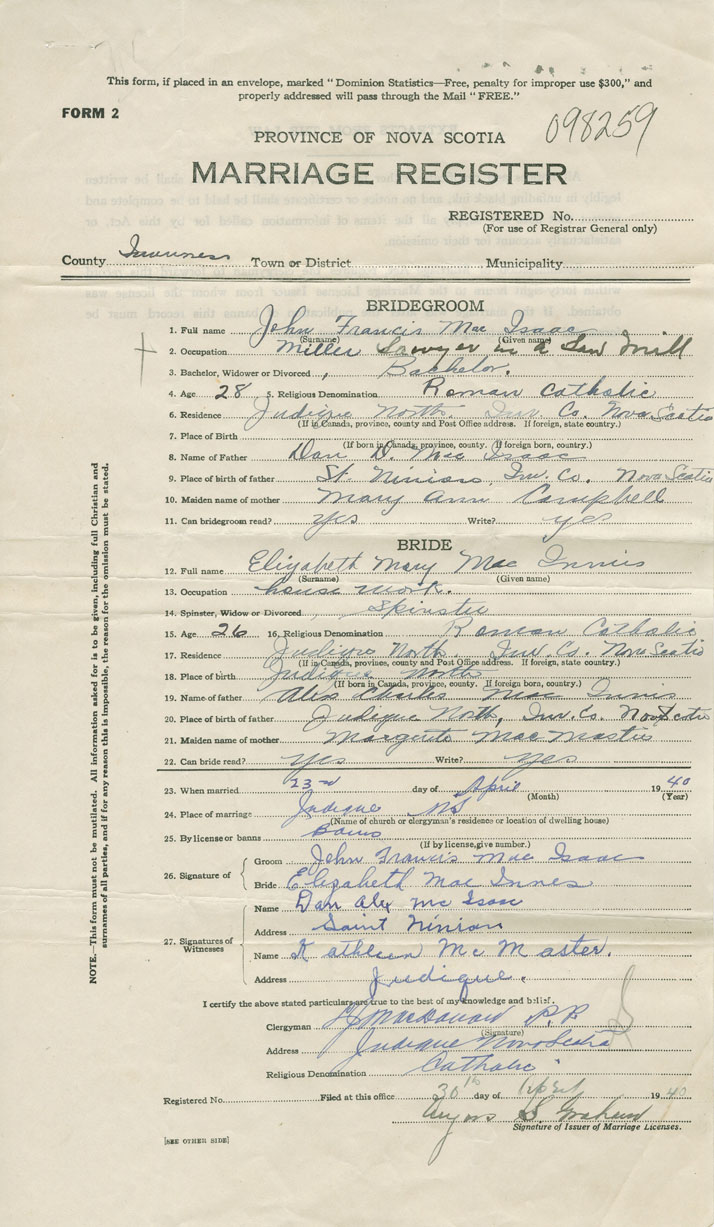 This form, if placed in an envelope, marked "Dominion Statistics—Free, penalty for improper use $300," and
properly addressed will pass through the Mail "FREE."
FORM 2
098259
PROVINCE OF NOVA SCOTIA
MARRIAGE REGISTER
REGISTERED No.
(For use of Registrar General only)
County Inverness Town or District Municipality
BRIDEGROOM
1. Full name John Francis Mac Isaac
(Surname) (Given name)
2. Occupation Miller Sawyer in a Saw Mill
3. Bachelor, Widower or Divorced Bachelor.
4. Age 28 5. Religious Denomination Roman Catholic
6. Residence Judique North. Inv. Co. Nova Scotia
(If in Canada, province, county and Post Office address. If foreign, state country.)
7. Place of Birth
(If born in Canada, province, county. If foreign born, country.)
8. Name of Father Dan D. Mac Isaac
9. Place of birth of father St. Ninian, Inv. Co. Nova Scotia
10. Maiden name of mother Mary Ann Campbell
11. Can bridegroom read? yes Write? yes
BRIDE
12. Full name Elizabeth Mary Mac Innis
(Surname) (Given name)
13. Occupation house work.
14. Spinster, Widow or Divorced Spinster
15. Age 26 16. Religious Denomination Roman Catholic
17. Residence Judique North. Inv. Co. Nova Scotia
(If in Canada, province, county and Post Office address. If foreign, state country.)
18. Place of birth Judique North
(If born in Canada, province, county. If foreign born, country.)
19. Name of father Alex Charles Mac Innis
20. Place of birth of father Judique North, Inv. Co. Nova Scotia
21. Maiden name of mother Margerite Mac Master
22. Can bride read? yes Write? yes
23. When married 23rd day of April 1940
(Month) (Year)
24. Place of marriage Judique NS
(Name of church or clergyman's residence or location of dwelling house)
25. By license or banns Banns
(If by license, give number.)
26. Signature of
Groom John Francis Mac Isaac
Bride Elizabeth Mac Innes
27. Signatures of Witnesses
Name Dan Alex Mc Isaac
Address Saint Ninian
Name Kathleen McMaster.
Address Judique.
I certify the above stated particulars are true to the best of my knowledge and belief.
Clergyman MacDonald P.P.
(Signature)
Address Judique Nova Scotia
Religious Denomination Catholic
Registered No. Filed at this office 30th day of 1940
Angus S. Graham
Signature of Issuer of Marriage Licenses.
[SEE OTHER SIDE]
NOTE.—This form must not be mutilated. All information asked for is to be given, including full Christian and
surnames of all parties, and if for any reason this is impossible, the reason for the omission must be stated.